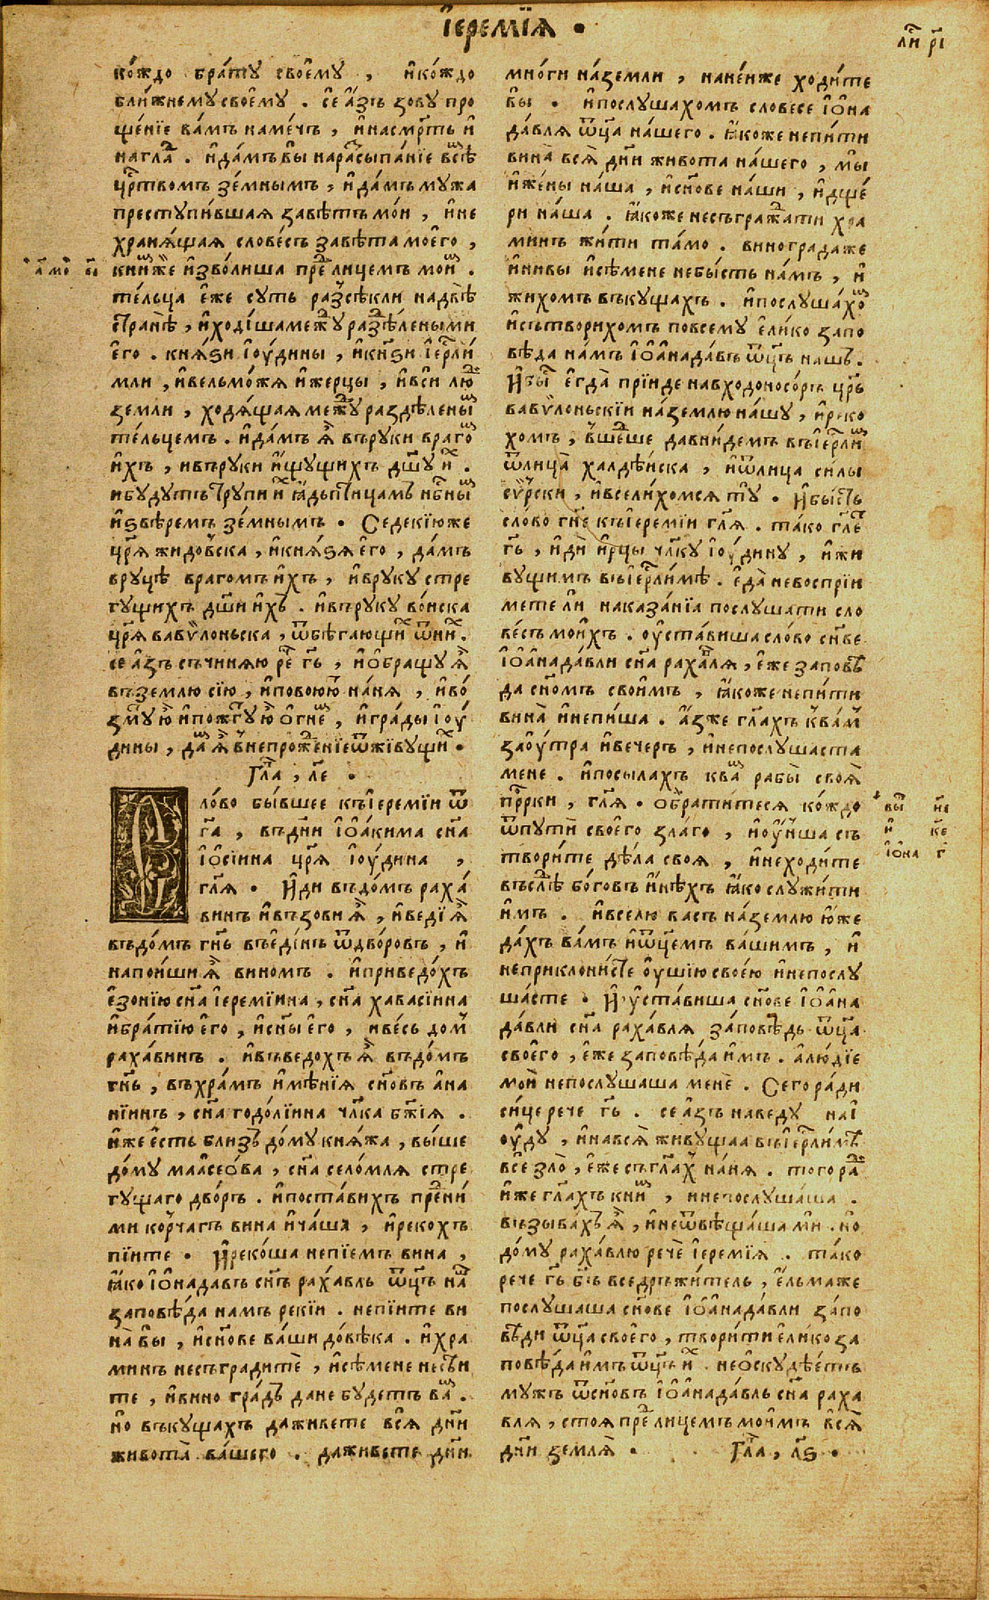 І҆еремїѧ .
ли҃ рі҃
ко́ждо бра́ту своему̀ , и҆ко́ждо
бли́жнемусвоемꙋ . се а҆зъ зову про
щенїе ва́мъ наме́чь , и҆насмр҃ть и҆
нагла́д . и҆да́мъвы нарасыпа́нїе всѣ́м
цр҃твомъ зе́мнымъ , и҆да́мъмужа
преступи́вшаѧ завѣ́тъмо́и , и҆не
хранѧ́щаѧ слове́съ завѣ́тамоего̀ ,
кни́мже и҆зво́лиша пре́д лицемъ мои́м .
те́льца є҆же суть разсѣкли надвѣ
странѣ , и҆ході́шамежу раздѣ́леными
его . кнѧ́ѕи і҆оу́дины , и҆кн҃ѕи і҆ерл҃и
мли , и҆вельмо́жѧ и҆жерцы , и҆вси лю́д
земли , ходѧ́щаѧ межу раздѣлены́м
те́льцемъ . и҆да́мъ ѧ҆̀ въруки враго́м
и҆хъ , ивъруки и҆щущихъ дш҃у и҆х .
ибудутътрупи и҆х ꙗ҆дьптицамъ нб҃ны́м
и҆ѕвѣремъ зе́мнымъ . Седекїюже
цр҃ѧ жидовска , и҆кнѧ́ѕѧ его , да́мъ
вруцѣ врагомъ и҆хъ , и҆вруку стре
гущихъ дш҃и и҆хъ . и҆въруку во́иска
цр҃ѧ вавѷлоньска , ѿбѣгающи́х ѿни́х .
се а҆зъ съчинѧю ре́ч гь҃ , и҆обращу ѧ҆̀
въземлю сїю , и҆повоюю́т на́нѧ , и҆во́
змуть ю҆̀ и҆пожгуть ю҆̀ огне́м , и҆гра́ды і҆оу́
дины , да́мъ ѧ҆̀ внепрожде́нїеѿживущи́х .
Гл҃а , ле҃ .
Сло́во бы́вшее къі҆еремїи ѿ
г҃а , въдн҃и і҆оа҆кима сн҃а
і҆ѻ҆сі́ина цр҃ѧ і҆оу́дина ,
гл҃ѧ . И҆ди въдо́мъ раха́
винъ и҆възови ѧ҆̀ , и҆веді̀ ѧ҆̀
въдо́мъ гн҃ь въе҆ді́нъ ѿдво́ровъ , и҆
напои́ши ѧ҆̀ виномъ . и҆приведо́хъ
езонїю сн҃а і҆еремїина , сн҃а хавасїина
и҆бра́тїю его , и҆сн҃ы его , иве́сь до́м
раха́винъ . и҆въведохъ ѧ҆̀ въдо́мъ
гн҃ь , въхра́мъ и҆мѣ́нїѧ сн҃овъ а҆на
нїинъ , сн҃а годо́лїина чл҃ка бж҃їѧ .
и҆же е҆сть близъ до́му кнѧ́жа , вы́ше
до́му маасео́ва , сн҃а село́млѧ стре
гущаго дво́ръ . и҆поста́вихъ пре́дни́
ми корчагъ вина и҆ча́ша , и҆рекохъ
пїите . И҆реко́ша непїемъ вина ,
ꙗ҆ко і҆ѻ҆надавъ сн҃ъ раха́вль ѿц҃ъ на́ш
заповѣ́да намъ рекїи . непїите ви
на́ вы , и҆сн҃ове ва́ши до́вѣка . и҆хра
минъ несъградитѐ , и҆сѣмене несѣи
те , и҆вино гра́дъ дане будетъ ва́м .
но въкущахъ даживете всѧ̀ дн҃и
живота̀ ва́шего . даживете дн҃и
мно́ги на́земли , нане́иже ходи́те
вы . и҆послушахомъ словесе і҆ѻ҆на
да́влѧ ѿц҃а на́шего . ꙗ҆коже непи́ти
вина̀ всѧ̀ дн҃и живота на́шего , мы́
и҆же́ны на́ша , и҆сн҃ове на́ши , и҆дще́
ри на́ша . ꙗ҆коже несъгража́ти хра
минъ жи́ти та́мо . виноградаже
и҆нивы и҆сѣ́мене небы́сть на́мъ , и҆
жихомъ въкущахъ . и҆послуша́хом
и҆сътворихомъ повсему̀ ели́ко запо
вѣда на́мъ і҆ѻ҆а҆нада́въ ѿц҃ъ нашъ .
И҆бы́ст е҆гда̀ прїиде навходоносо́ръ цр҃ь
вавѷлоньскїи на́землю на́шу , и҆реко
хомъ , вше́дше да́внидемъ въі҆ер҃ли́м
ѿлица̀ халдѣ́иска , и҆ѿлица си́лы
сѷ́рски , и҆всели́хомсѧ ту́ . И҆бы́сть
сло́во гн҃е къі҆ереміи гл҃ѧ . та́ко гл҃ет
гь҃ , и҆дѝ и҆рцы чл҃ку і҆оу́дину , и҆жи
вущимъ въі҆ер҃ли́мѣ . е҆да̀ невоспрїи
мете ли́ наказа́нїа послушати сло
ве́съ мои́хъ . оу҆ста́виша сло́во сн҃ве
і҆ѻ҆а҆нада́вли сн҃а раха́влѧ , е҆же запов́ѣ
да сн҃омъ свои́мъ , ꙗ҆коже непи́ти
вина̀ и҆непи́ша . а҆зже гл҃ахъ к҆ва́м
заоу҆тра и҆вечеръ , и҆непослушаста
мене . и҆посылахъ ква́м рабы̀ своѧ̀
пр҃рки , гл҃ѧ . обрати́тесѧ ко́ждо
ѿпутѝ своего зла́го , и҆оу҆не́иша съ
твори́те дѣ́ла своѧ , и҆неходи́те
въслѣ́д бо́говъ и҆нѣхъ ꙗ҆ко служи́ти
и҆мъ . и҆вселю васъ на́землю ю҆же
да́хъ ва́мъ и҆ѿц҃емъ ва́шимъ , и҆
неприклони́сте оу҆шїю своею и҆непослу
ша́сте . И҆ у҆ста́виша сн҃ове і҆ѻ҆а҆на
да́вли сн҃а раха́влѧ за́повѣдь ѿц҃а
своего , е҆же заповѣ́да и҆мъ . а҆лю́дїе
мои̂ непослушаша менѐ . Сего ра́ди
си́це рече гь҃ . се а҆зъ наведу на і҆
оу҆ду , и҆навсѧ̀ живущаа въі҆ер҃ли́мъ
всѐ зло̀ , е҆же съгла́х на́нѧ . того ра́д
и҆же гл҃ахъ кни́м , инепослушаша .
възыва́хъ ѧ҆̀ , и҆неѿвѣща́ша ми . но
до́му раха́влю рече̂ і҆еремїѧ . та́ко
рече гь҃ бг҃ъ вседръжи́тель , е҆льмаже
послушаша сн҃ове і҆ѻ҆а҆нада́вли за́по
вѣди ѿц҃а своего , твори́ти ели́ко за
повѣ́да и҆мъ ѿц҃ъ и҆х . неоскудѣ́етъ
мужъ ѿсн҃овъ і҆ѻ҆а҆нада́вль сн҃а раха
влѧ , стоѧ пре́д лицемъ мои́мъ всѧ̀
дн҃и землѧ̀ . Гл҃а , лѕ҃ .